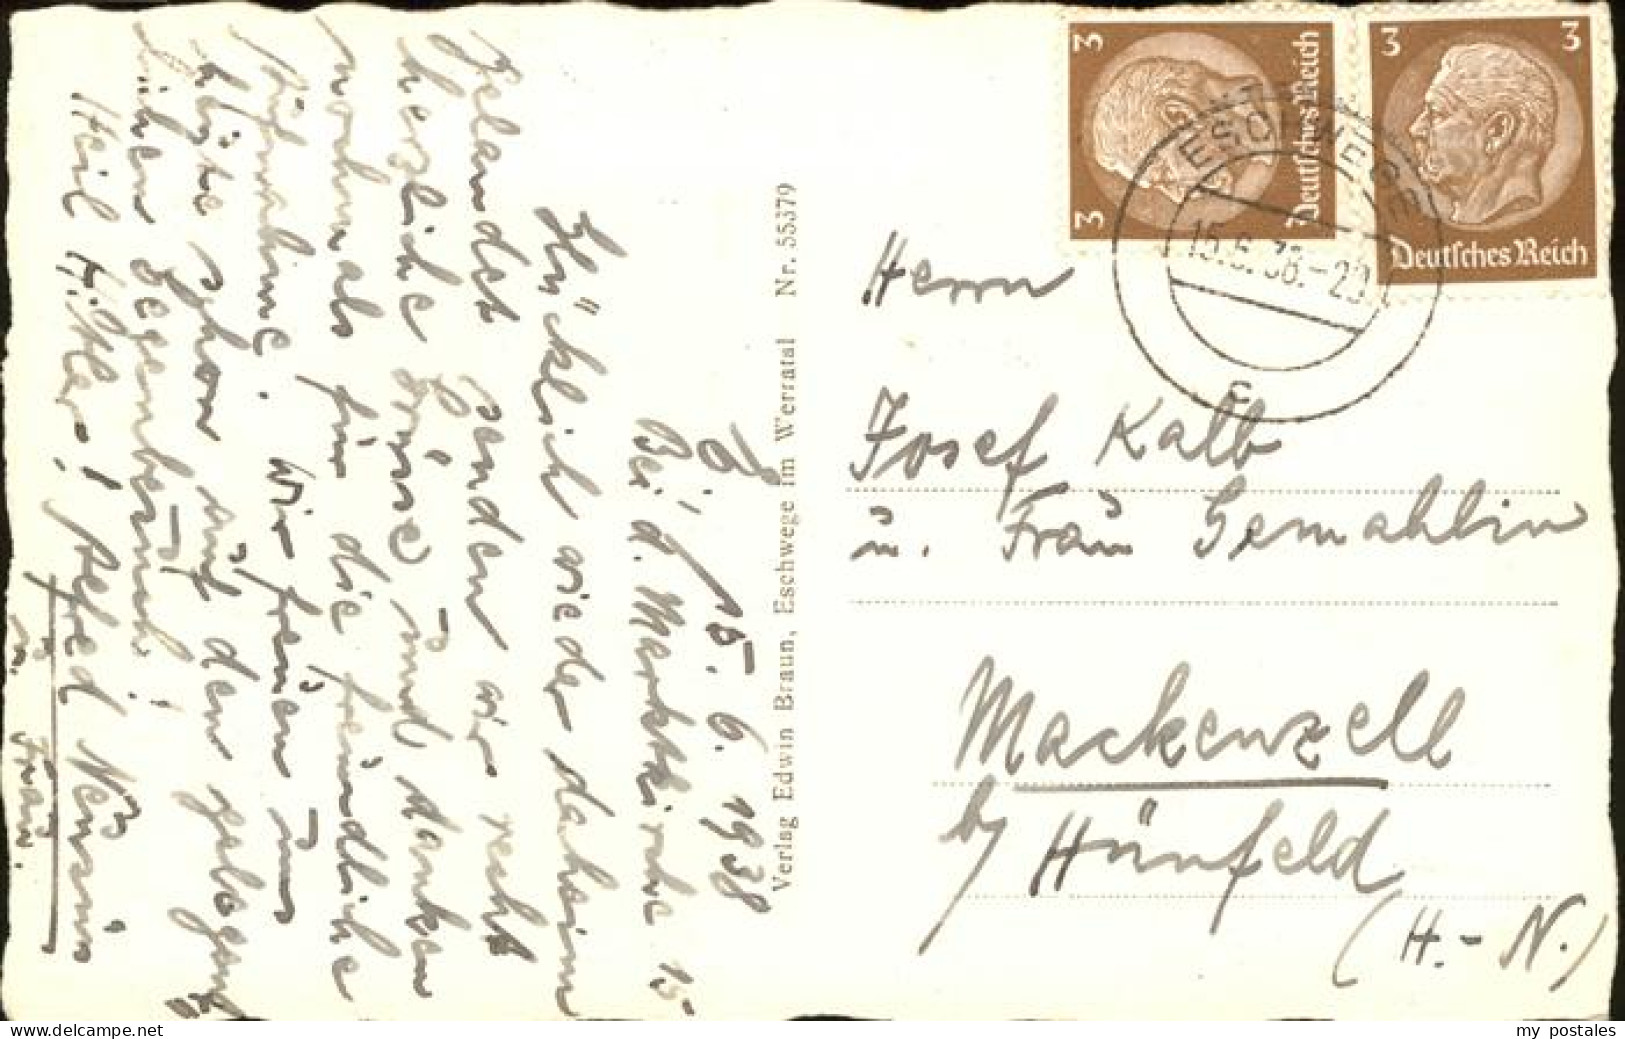 E., 15. 6. 1938
Bei d. Marktkirche 15
Glücklich wieder daheim
gelandet senden wir recht
herzliche Grüsse und danken
nochmals für die freundliche
Aufnahme. Wir freuen uns
heute schon auf den gelegentl.
Gegenbesuch!
Heil Hitler! Alfred
u. Frau.
Verlag Edwin Braun, Eschwege im Werratal Nr. 55379
3 3
Deutsches Reich
3 3
Deutsches Reich
ESCHWEGE
15.6.38.-20
c
Herrn
Josef Kalb
u. Frau Gemahlin
Mackenzell
by Hünfeld
(H.-N.)
www.delcampe.net
my_postales